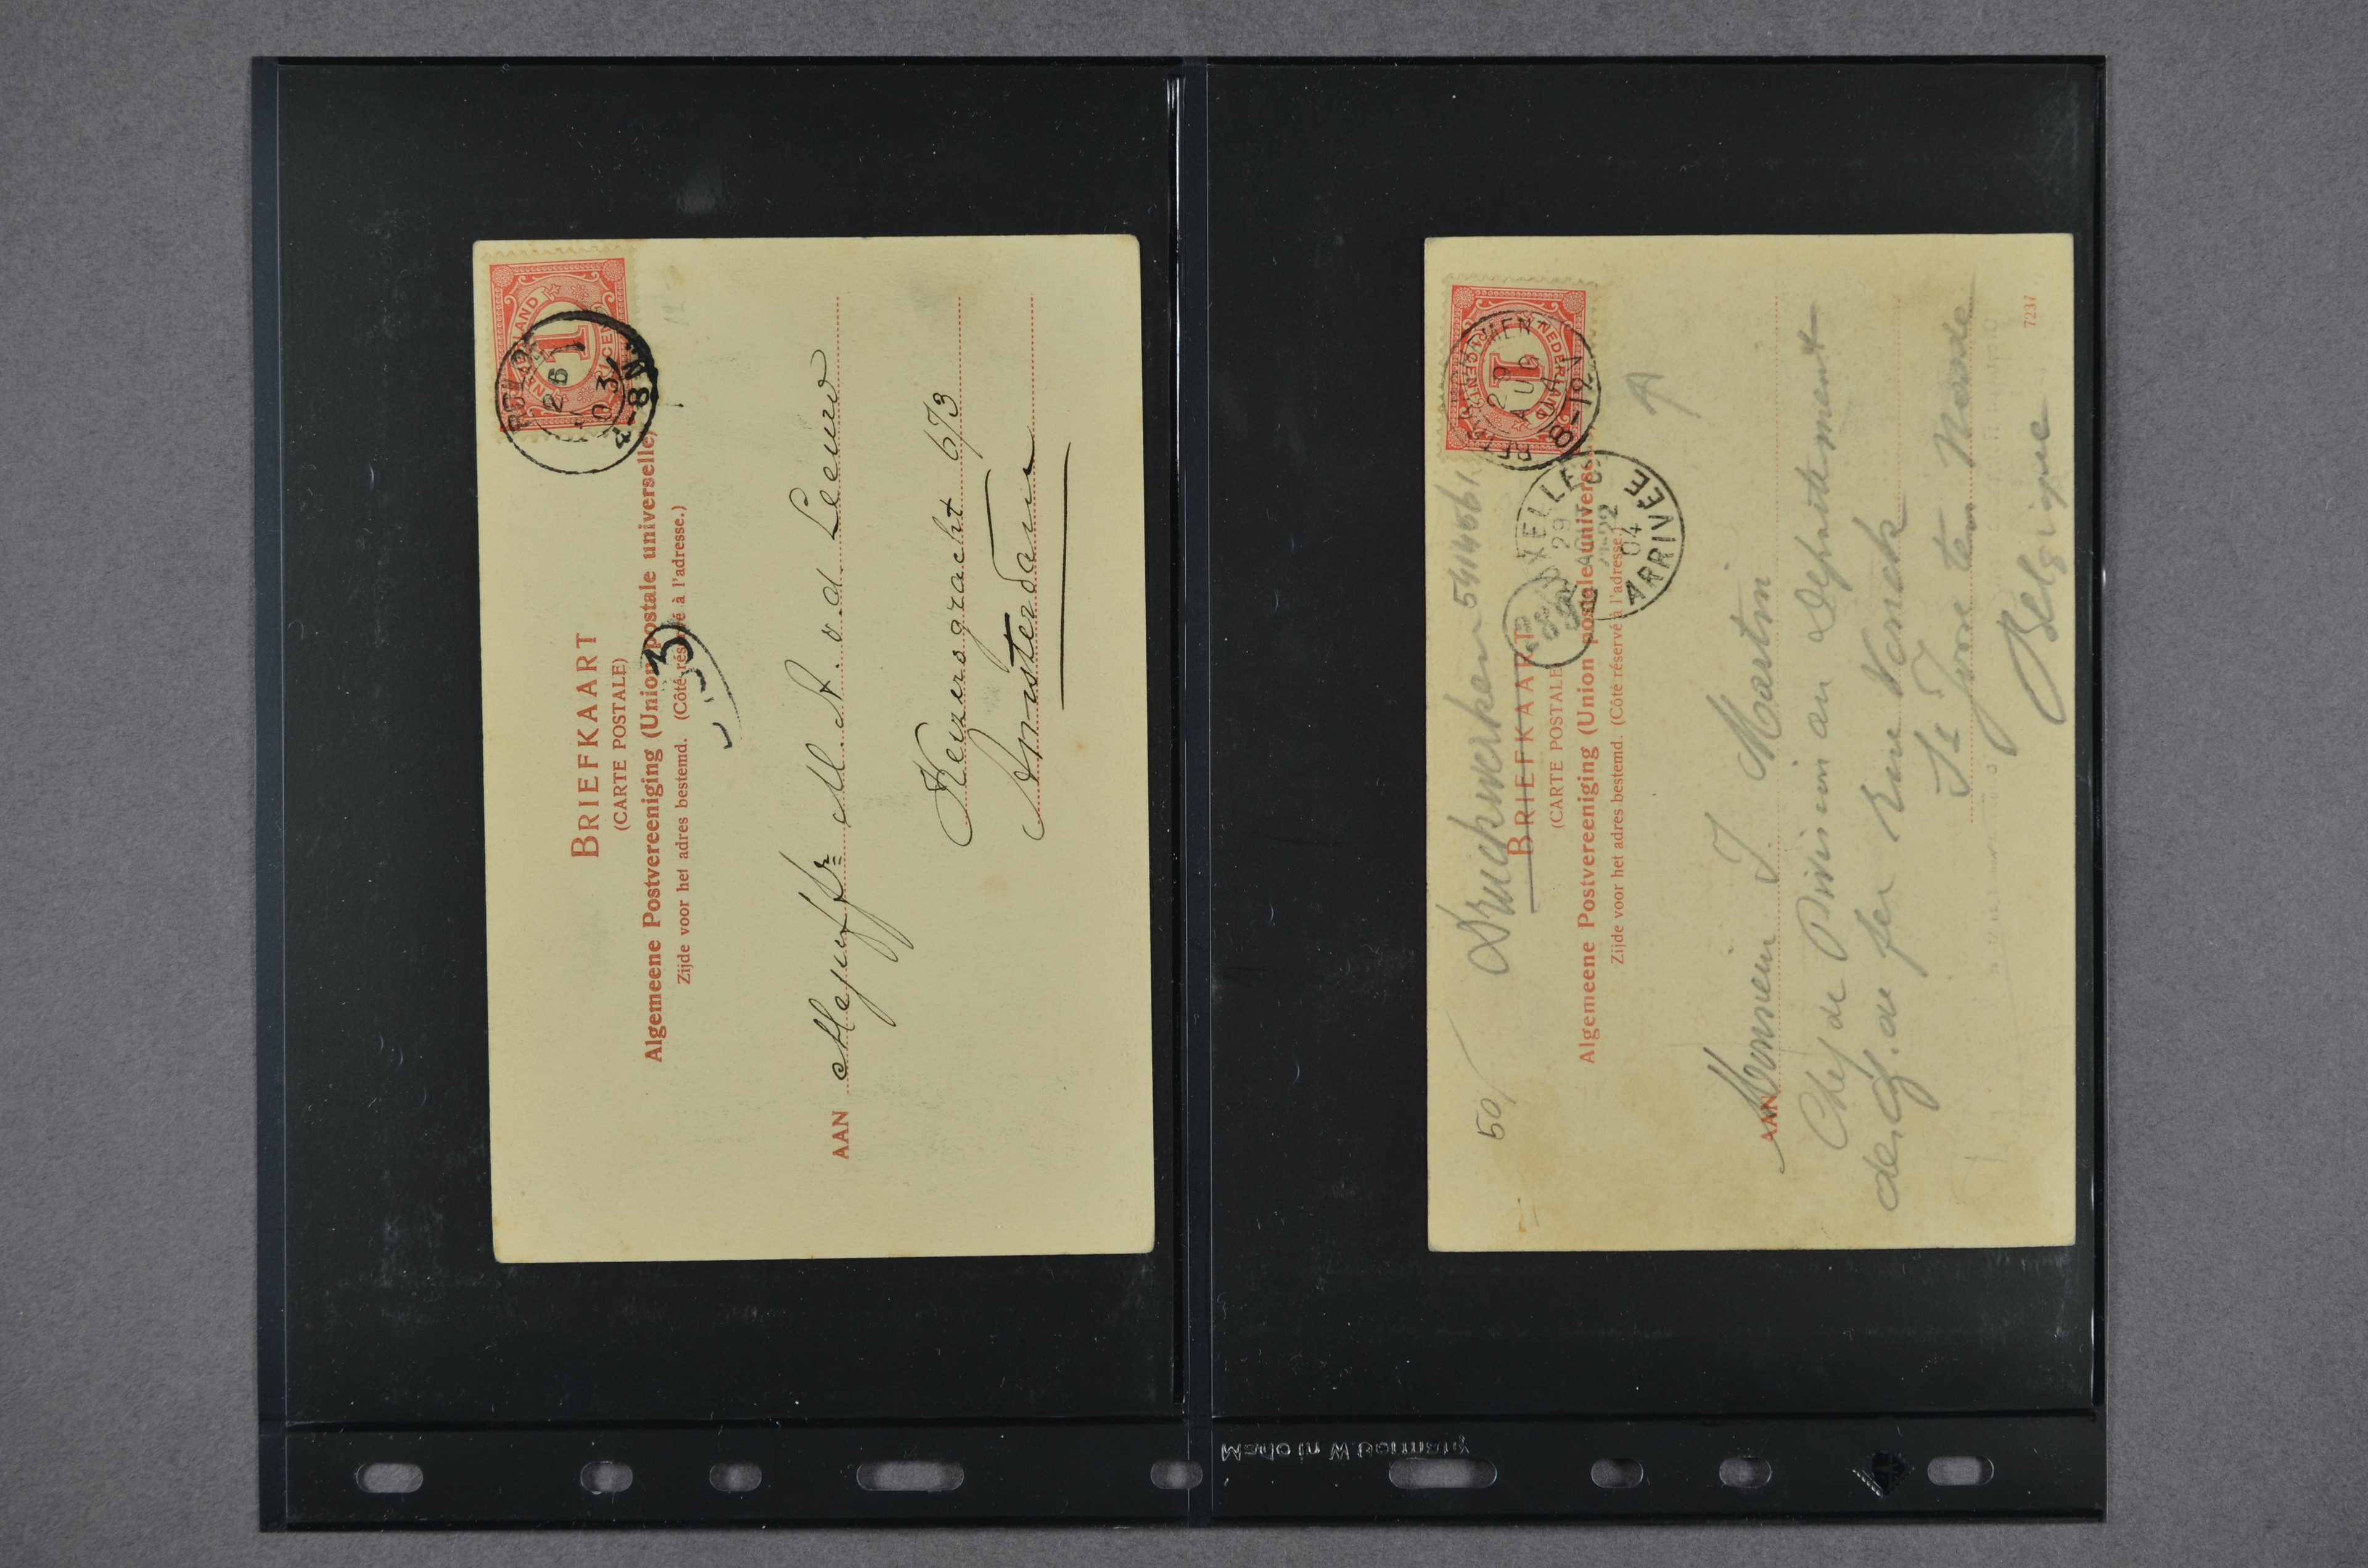 BRIEFKAART
(CARTE POSTALE)
Algemeene Postvereeniging (Union postale universelle)
Zijde voor het adres bestemd. (Côté réservé à l'adresse.)
NEDERLAND
1
CENT
26
03
4-8N
3
AAN Mejuffr M. A. v. d. Leeuw
Keizersgracht 673
Amsterdam
50
Drukwerken
BRIEFKAART
(CARTE POSTALE)
Algemeene Postvereeniging (Union postale universelle
Zijde voor het adres bestemd. (Côté réservé à l'adresse.)
NEDERLAND
1
CENT
29
AUG
8-12
BRUXELLES
29
AOUT
04
ARRIVÉE
A
AAN Monsieur J. Martin
Chef de Division au Département
de
de fer Rue
St Josse ten Noode
Belgique
7237
Made in W. Germany